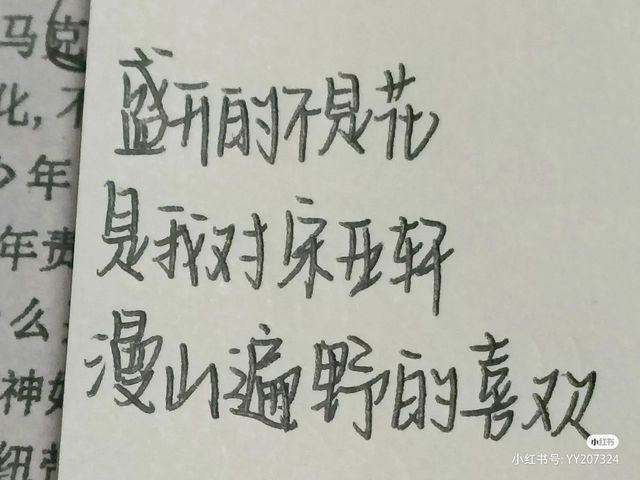 马克
化,不
少年
年责
么
神
纽
盛开的不是花
是我对宋亚轩
漫山遍野的喜欢
小红书
小红书号: YY207324